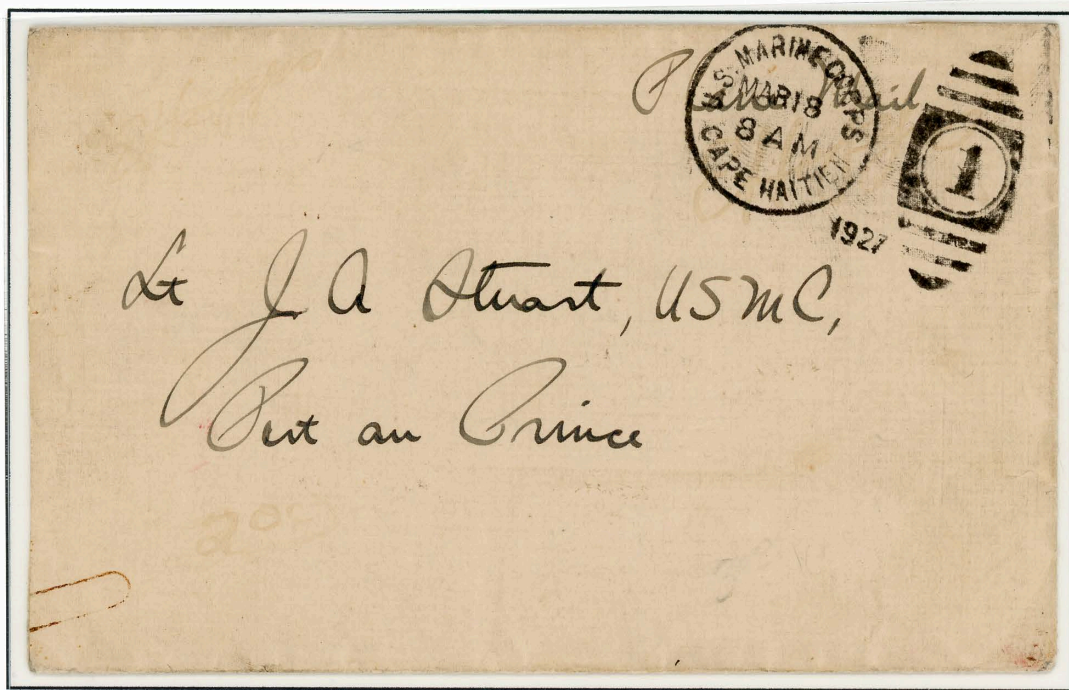 U.S. MARINE CORPS
MAR 18
8 AM
CAPE HAITIEN
1927
1
Mail
Lt J A Stuart, USMC,
Port au Prince